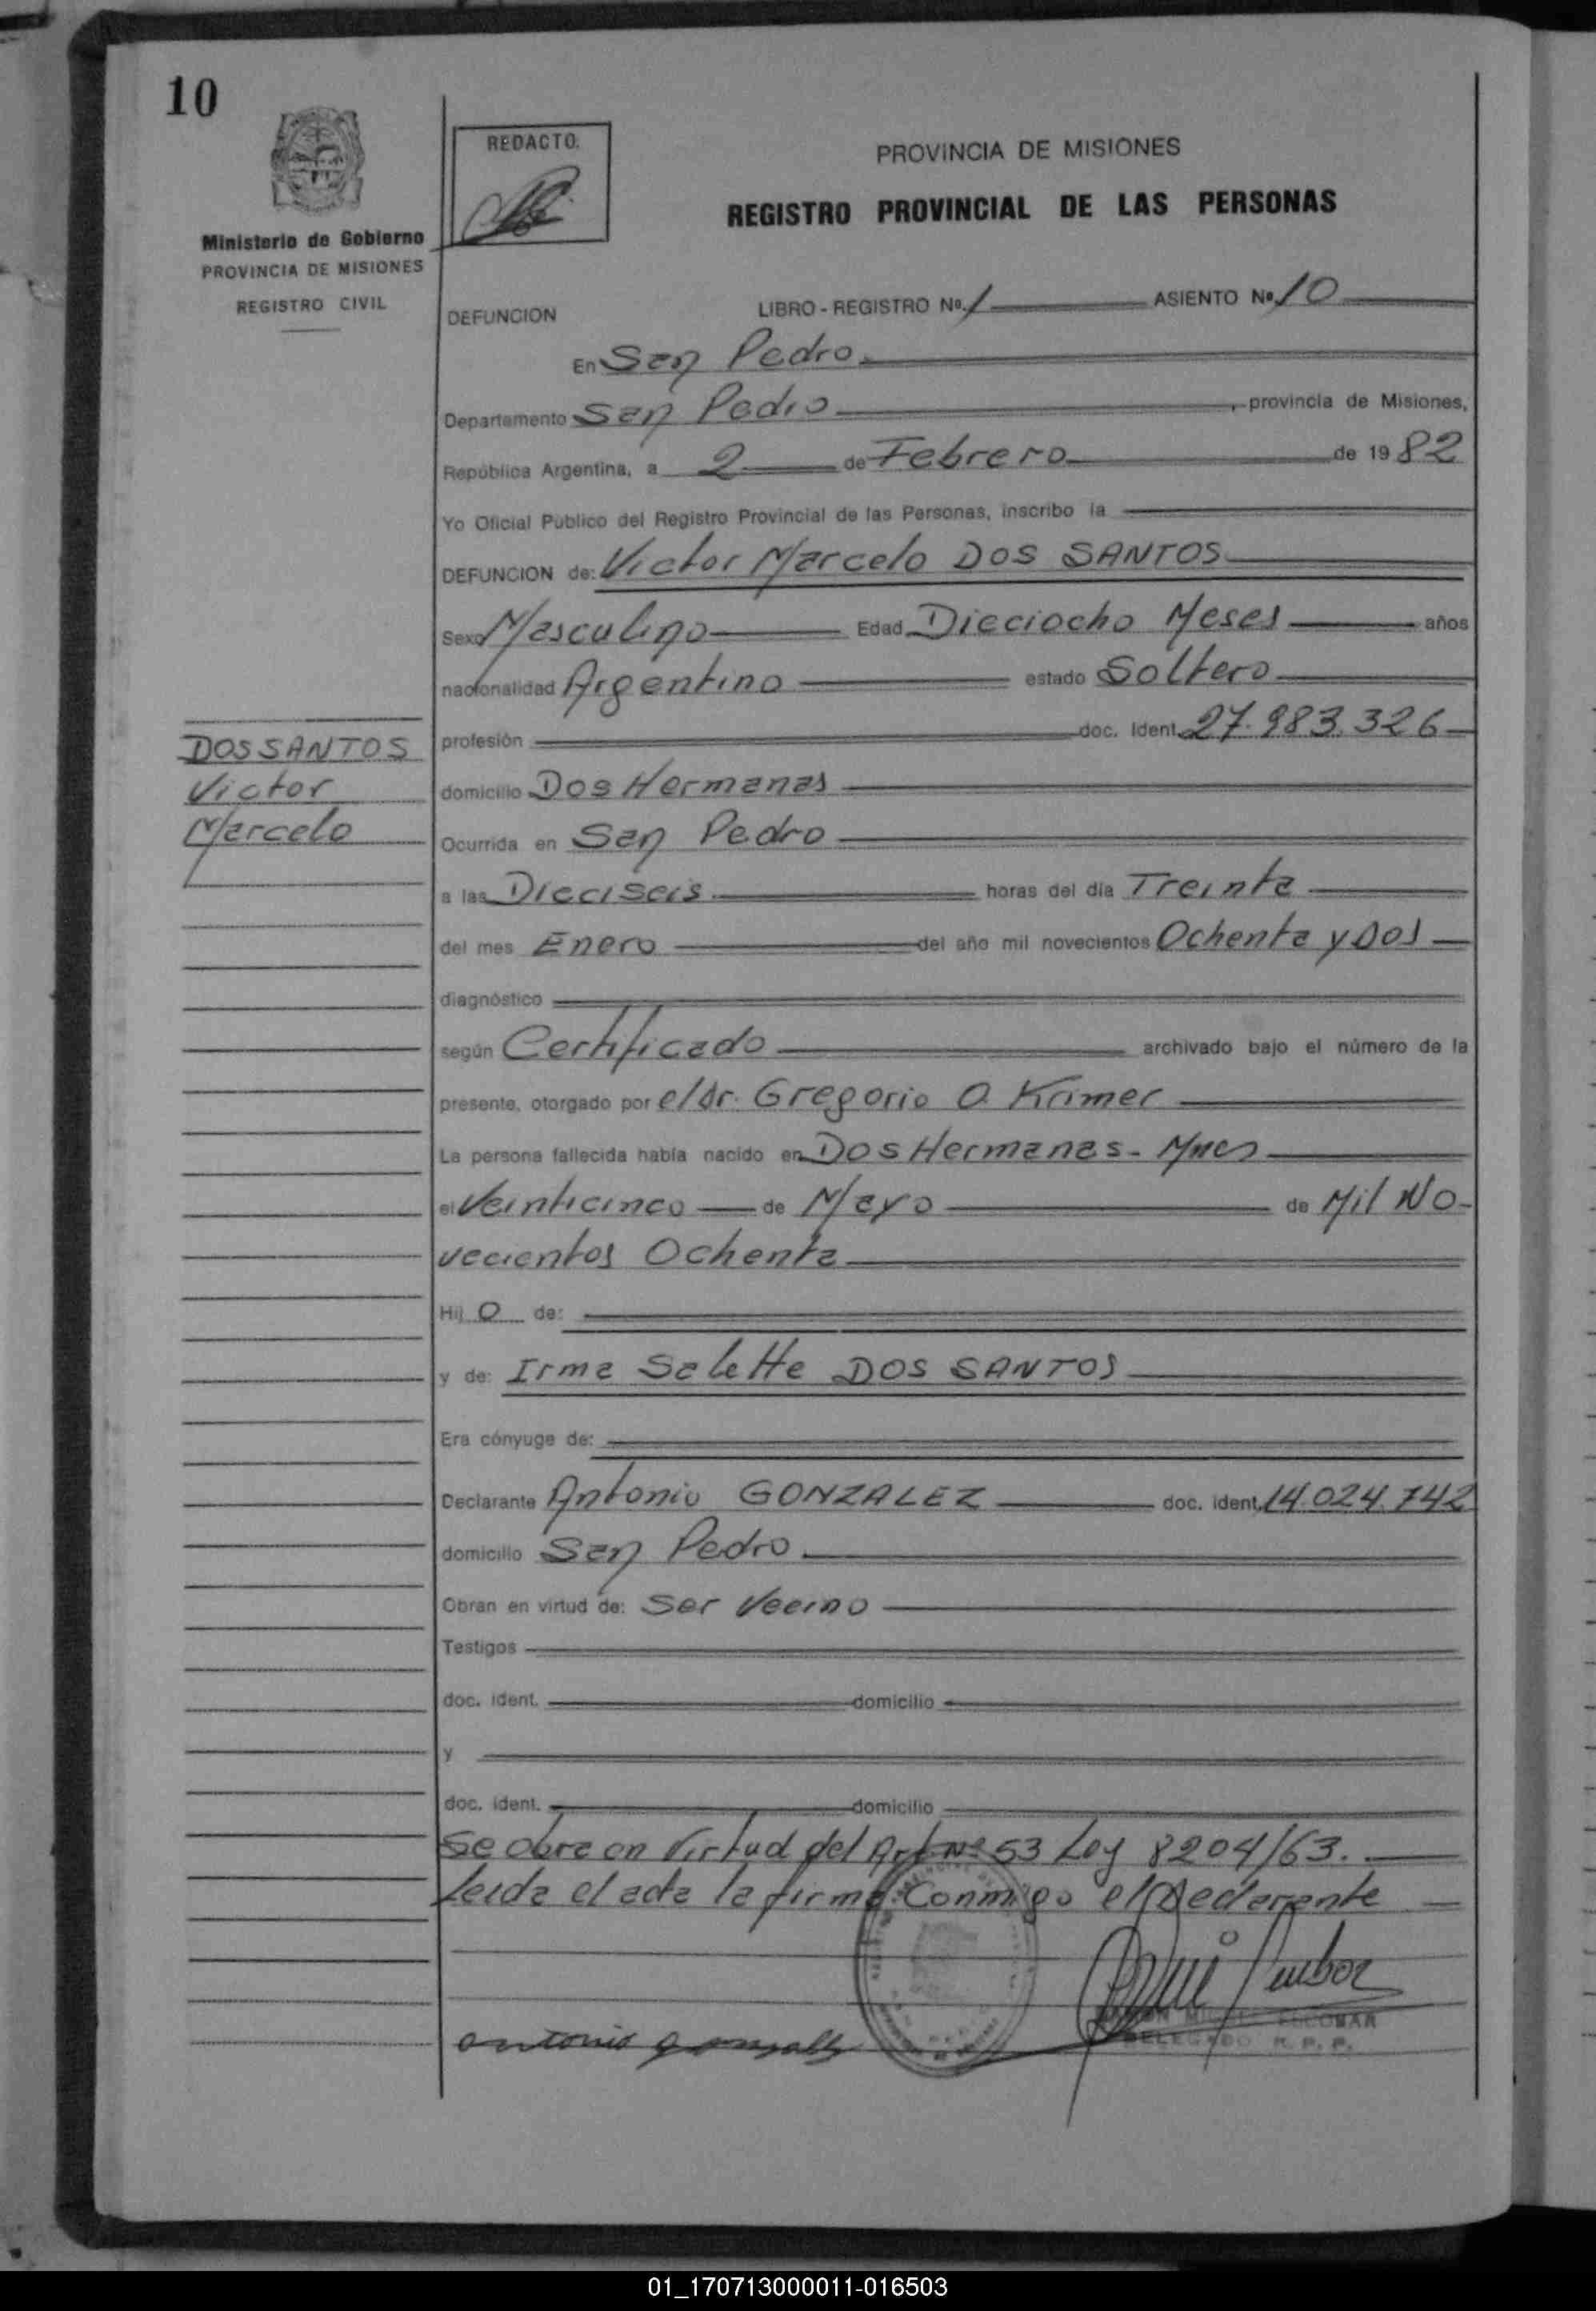 10
REDACTO:
Ministerio de Gobierno
PROVINCIA DE MISIONES
REGISTRO CIVIL
PROVINCIA DE MISIONES
REGISTRO PROVINCIAL DE LAS PERSONAS
DEFUNCION LIBRO - REGISTRO Nº. 1 ASIENTO Nº. 10
En San Pedro
Departamento San Pedro, provincia de Misiones,
República Argentina, a 2 de Febrero de 1982
Yo Oficial Público del Registro Provincial de las Personas, inscribo la
DEFUNCION de: Victor Marcelo DOS SANTOS
Sexo Masculino Edad Dieciocho Meses años
nacionalidad Argentino estado Soltero
profesión doc. Ident. 27.983.326
DOS SANTOS
Victor
Marcelo
domicilio Dos Hermanas
Ocurrida en San Pedro
a las Dieciseis horas del día Treinta
del mes Enero del año mil novecientos Ochenta y Dos
diagnóstico
según Certificado archivado bajo el número de la
presente, otorgado por el Dr. Gregorio O. Krimer
La persona fallecida había nacido en Dos Hermanas - Mnes
el Veinticinco de Mayo de Mil No-
vecientos Ochenta
Hij o de:
y de: Irma Salette DOS SANTOS
Era cónyuge de:
Declarante Antonio GONZALEZ doc. ident. 14.024.742
domicilio San Pedro
Obran en virtud de: Ser Vecino
Testigos
doc. ident. domicilio
y
doc. ident. domicilio
Se obra en Virtud del Art Nº 53 Ley 8204/63.
Leida el acta la firma Conmigo el Declarante
antonio gonzalez
ESCOBAR
DELEGADO R. P. P.
01_170713000011-016503